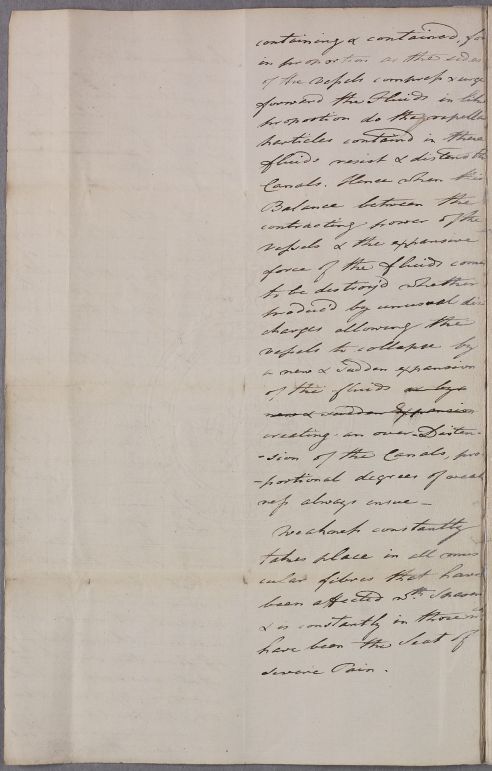 containing & contained, for
in proportion as the sides
of the Vessels compress & urge
forward the Fluids in like
proportion do the repelle
particles contained in these
fluids resist & distend the
Canals. Hence when this
Balance between the
contracting power of the
vessels & the expansive
force of the fluids comes
to be destroy'd whether
produc'd by unusual dis
charges allowing the
vessels to collapse by
a new & sudden expansion
of the fluids or by a
new & sudden Expansion
creating an over-Disten-
-sion of the Canals, pro
-portional degrees of weak
ness always ensue —
Weakness constantly
takes place in all mus
cular fibres that have
been affected wth Spasm
& is constantly in those
have been the Seat of
severe Pain.